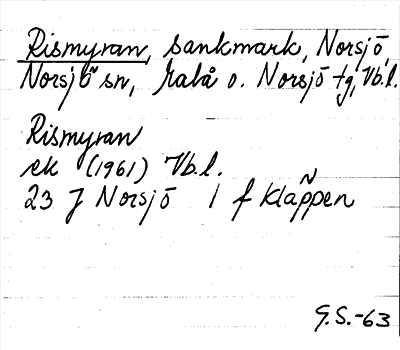 Rismyran, sankmark, Norsjö,
Norsjö sn, Malå o. Norsjö tg, Vb.l.
Rismyran
ek (1961) Vb.l.
23 J Norsjö 1 f Kläppen
G.S.-63